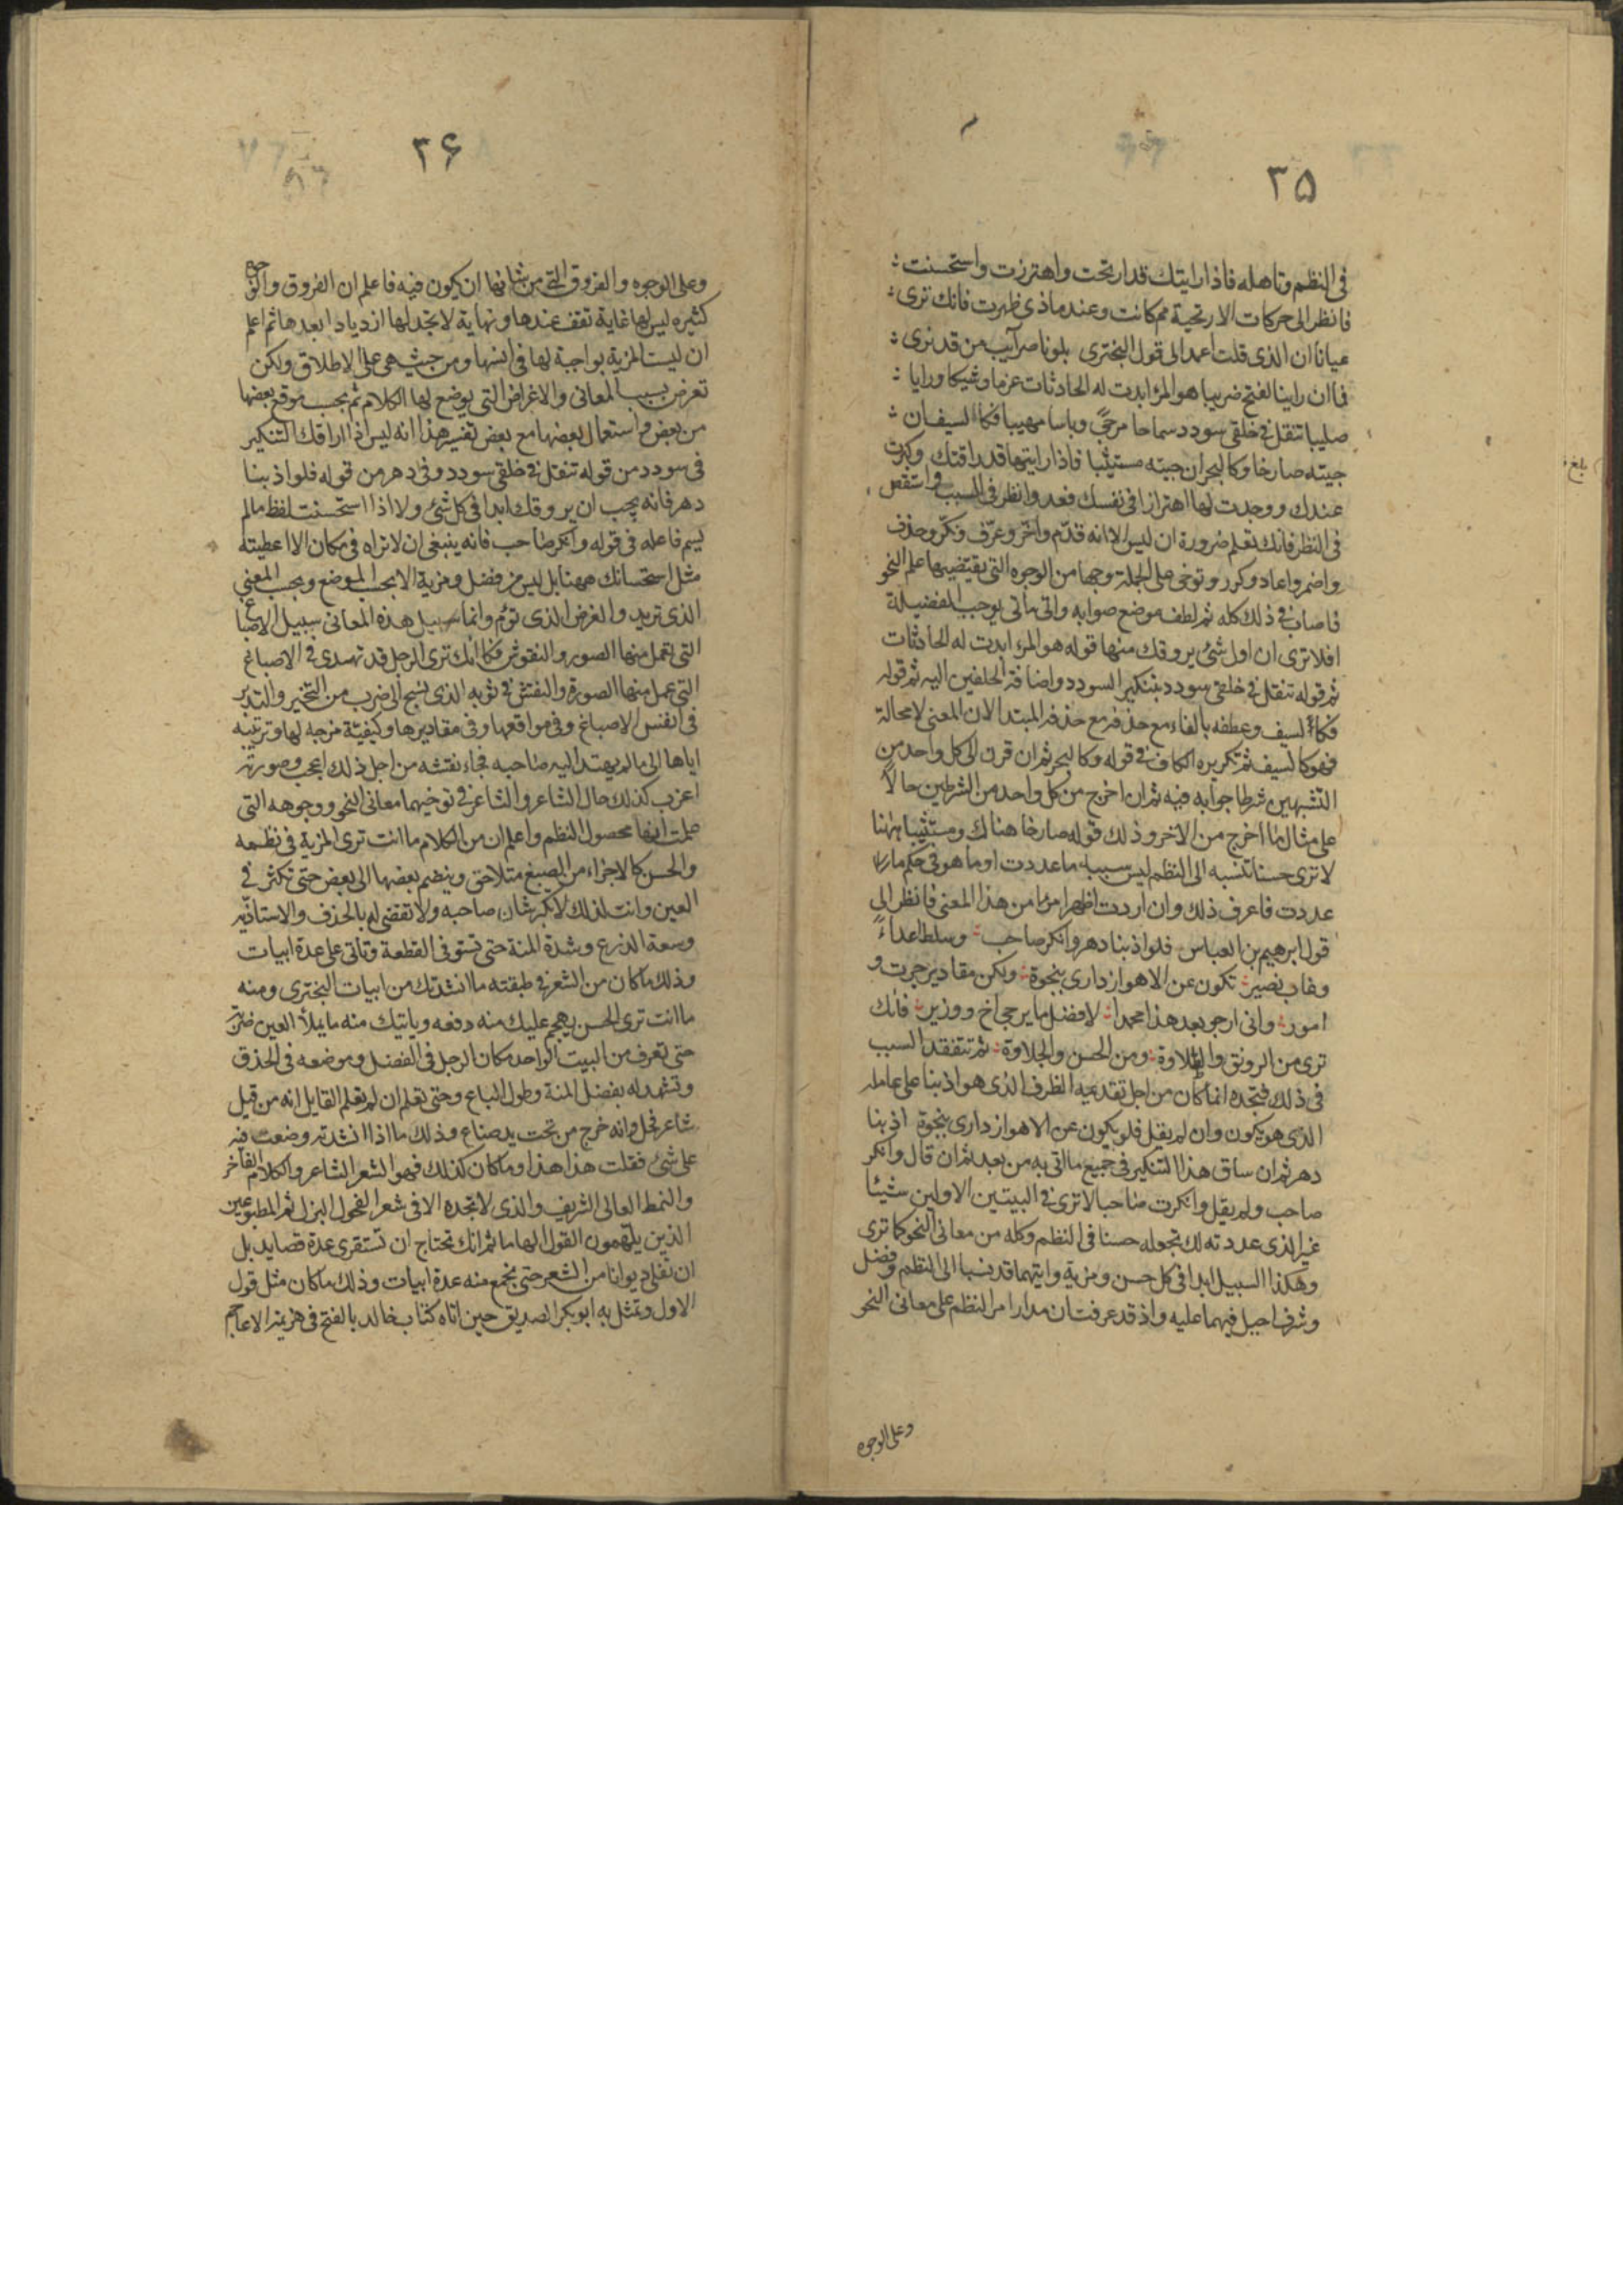 ۳۵
فى النظم وتاهله فاذا رايتك قد ارتحت واهتززت واستحسنت
فانظر الى حركات الاريحية مم كانت وعند ماذى ظهرت فانك ترى
عيانا ان الذى قلت اعمد الى قول البخترى بلونا ضرايب من قد نرى
فما ان راينا لفتح ضريبا هو المرء ابدت له الحادثات عزما وشيكا ورايا
صليبا تنقل فى خلقى سودد سماحا مرجّى وباسا مهيبا فكالسيف ان
جيته صارخا وكالبحر ان جيته مستثيبا فاذا رايتها قد راقتك وكثرت
عندك ووجدت لها اهتزازا فى نفسك فعد وانظر فى السبب واستقص
فى النظر فانك تعلم ضرورة ان ليس الا انه قدّم واخّر وعرّف ونكّر وحذف
واضمر واعاد وكرر وتوخى على الجملة وجها من الوجوه التى يقتضيها علم النحو
فاصاب فى ذلك كله ثم لطف موضع صوابه واتى ماتى يوجب الفضيلة
افلا ترى ان اول شئ يروقك منها قوله هو المرء ابدت له الحادثات
ثم قوله تنقل فى خلقى سودد بتنكير السودد واضافة الخلقين اليه ثم قوله
فكالسيف وعطفه بالفاء مع حذفه مع حذفه المبتدا لان المعنى لا محالة
فهو كالسيف ثم تكريره الكاف فى قوله وكالبحر ثم ان قرن الى كل واحد من
التشبيهين شرطا جوابه فيه ثم ان اخرج من كل واحد من الشرطين حالا
على مثال ما اخرج من الاخر وذلك قوله صارخا هناك ومستثيبا ههنا
لا ترى حسنا تنسبه الى النظم ليس سببه ما عددت او ما هو فى حكم ما
عددت فاعرف ذلك وان اردت اظهر امرا من هذا المعنى فانظر الى
قول ابرهيم بن العباس فلو اذ بنا دهر وانكر صاحب وسلط اعداءً
وغاب نصير تكون عن الاهواز دارى بنجوة ولكن مقادير جرت و
امور وانى ارجو بعد هذا محمدا لافضل ما يرجى اخ ووزير فانك
ترى من الرونق والطلاوة ومن الحسن والحلاوة ثم تتفقد السبب
فى ذلك فتجده انما كان من اجل تقديمه الظرف الذى هو اذ بنا على عامله
الذى هو يكون وان لم يقل فلو يكون عن الاهواز دارى بنجوة اذ بنا
دهر ثم ان ساق هذا التنكير فى جميع ما اتى به من بعد ثم ان قال وانكر
صاحب ولم يقل وانكرت صاحبا لا ترى فى البيتين الاولين شيئا
غير الذى عددته لك تجعله حسنا فى النظم وكله من معانى النحو كما ترى
وهكذا السبيل ابدا فى كل حسن ومزية وايتهما قد نسبا الى النظم وفضل
وشرف احيل فيهما عليه واذ قد عرفت ان مدار امر النظم على معانى النحو
وعلى الوجوه
بلغ
۳۶
وعلى الوجوه والفروق التى من شانها ان يكون فيه فاعلم ان الفروق والوجوه
كثيره ليس لها غاية تقف عندها ونهاية لا تجد لها ازديادا بعدها ثم اعلم
ان ليست المزية بواجبة لها فى انفسها ومن حيث هى على الاطلاق ولكن
تعرض بسبب المعانى والاغراض التى يوضع لها الكلام ثم بحسب موقع بعضها
من بعض واستعمال بعضها مع بعض تفسير هذا انه ليس اذا راقك التنكير
فى سودد من قوله تنقل فى خلقى سودد وفى دهر من قوله فلو اذ بنا
دهر فانه يجب ان يروقك ابدا فى كل شئ ولا اذا استحسنت لفظ مالم
يسم فاعله فى قوله وانكر صاحب فانه ينبغى ان لا تراه فى مكان الا اعطيته
مثل استحسانك ههنا بل ليس من فضل ومزية الا بحسب الموضع وبحسب المعنى
الذى تريد والغرض الذى تؤم وانما سبيل هذه المعانى سبيل الاصباغ
التى تعمل منها الصور والنقوش فكما انك ترى الرجل قد تهدى فى الاصباغ
التى عمل منها الصورة والنقش فى ثوبه الذى نسج الى ضرب من التخير والتدبر
فى انفس الاصباغ وفى مواقعها وفى مقاديرها وكيفيّة مزجه لها وترتيبه
اياها الى ما لم يهتد اليه صاحبه فجاء نقشه من اجل ذلك اعجب وصورته
اغرب كذلك حال الشاعر والشاعر فى توخيهما معانى النحو ووجوهه التى
علمت انها محصول النظم واعلم ان من الكلام ما انت ترى المزية فى نظمه
والحسن كالاجزاء من الصبغ متلاحق وينضم بعضها الى بعض حتى تكثر فى
العين وانت لذلك لا تكبر شان صاحبه ولا تقضى له بالحذق والاستاذيّة
وسعة الذرع وشدة المنة حتى تستوفى القطعة وتاتى على عدة ابيات
وذلك ما كان من الشعر فى طبقته ما انشدتك من ابيات البخترى ومنه
ما انت ترى الحسن يهجم عليك منه دفعه وياتيك منه ما يملأ العين ضربة
حتى تعرف من البيت الواحد مكان الرجل فى الفضل وموضعه فى الحذق
وتشهد له بفضل المنة وطول الباع وحتى تعلم ان لم تعلم القايل انه من قيل
شاعر فحل وانه خرج من تحت يد صناع وذلك ما اذا انشدته وضعت فيه
على شئ فقلت هذا هذا وما كان كذلك فهو الشعر الشاعر والكلام الفاخر
والنمط العالى الشريف والذى لا تجده الا فى شعر الفحول البزل ثم المطبوعين
الذين يلهمون القول الهاما ثم انك تحتاج ان تستقرى عدة قصايد بل
ان تفلى ديوانا من الشعر حتى تجمع منه عدة ابيات وذلك ما كان مثل قول
الاول وتمثل به ابو بكر الصديق حين اتاه كتاب خالد بالفتح فى هزيمة الاعاجم